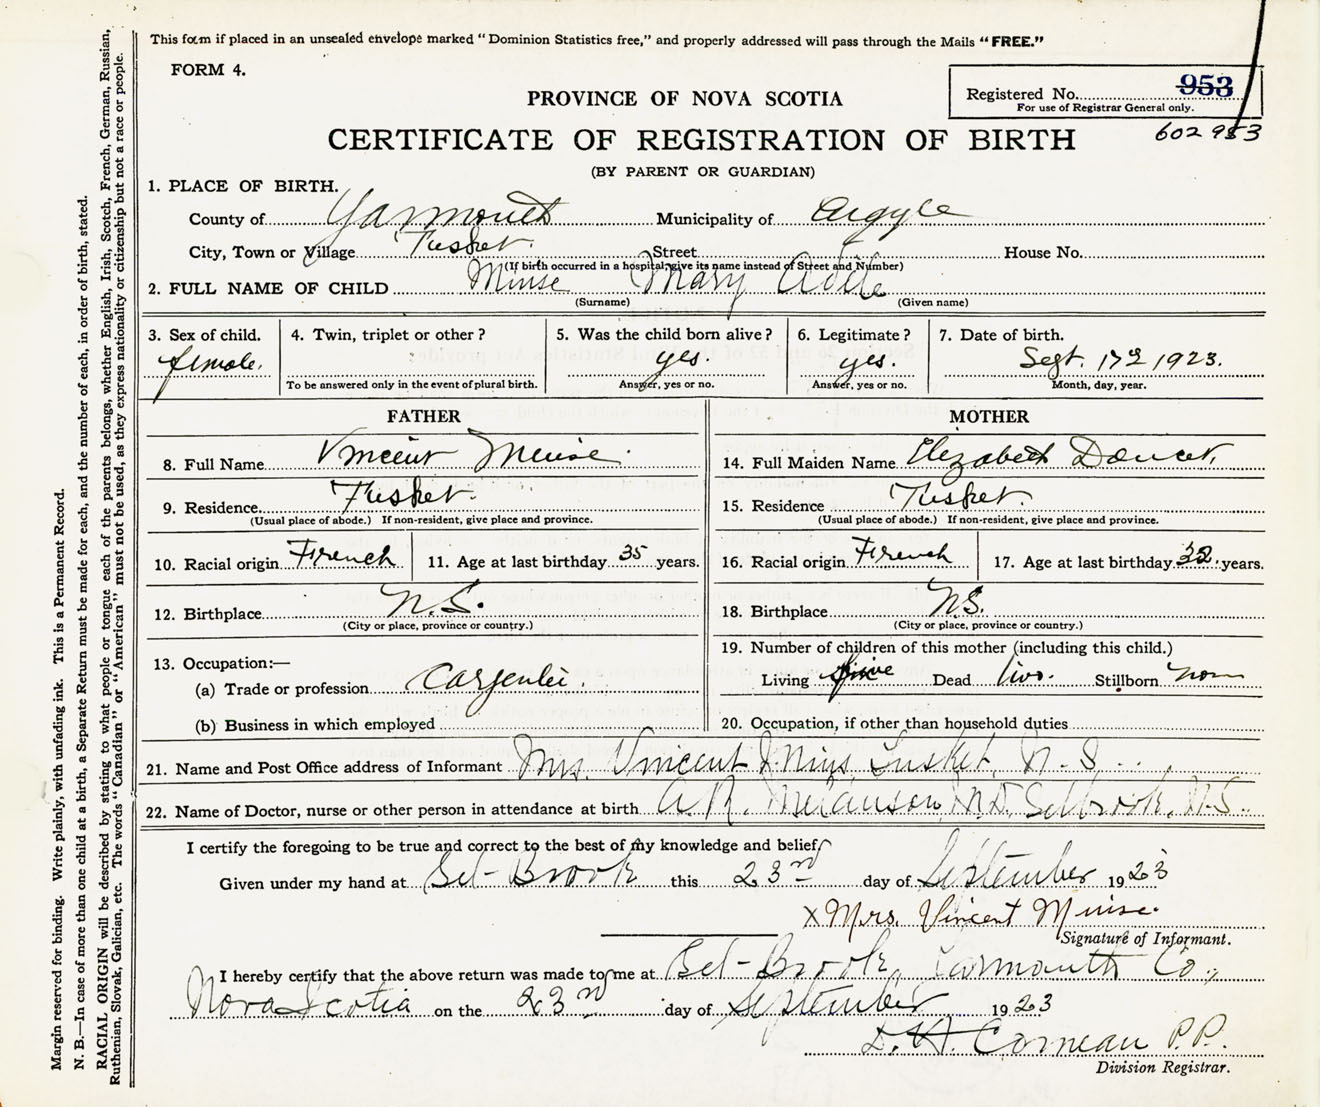 This form if placed in an unsealed envelope marked “ Dominion Statistics free,” and properly addressed will pass through the Mails “ FREE.”
FORM 4.
Registered No. 953
For use of Registrar General only.
602953
PROVINCE OF NOVA SCOTIA
CERTIFICATE OF REGISTRATION OF BIRTH
(BY PARENT OR GUARDIAN)
1. PLACE OF BIRTH.
County of Yarmouth Municipality of Argyle
City, Town or Village Tusket Street House No.
(If birth occurred in a hospital, give its name instead of Street and Number)
2. FULL NAME OF CHILD Muise Mary Adele
(Surname) (Given name)
3. Sex of child. 4. Twin, triplet or other ? 5. Was the child born alive ? 6. Legitimate ? 7. Date of birth.
female. yes. yes. Sept. 17 1923.
To be answered only in the event of plural birth. Answer, yes or no. Answer, yes or no. Month, day, year.
FATHER
8. Full Name Vincent Meuise
9. Residence Tusket.
(Usual place of abode.) If non-resident, give place and province.
10. Racial origin French 11. Age at last birthday 35 years.
12. Birthplace N.S.
(City or place, province or country.)
13. Occupation:—
(a) Trade or profession Carpenter.
(b) Business in which employed
MOTHER
14. Full Maiden Name Elizabeth Doucet.
15. Residence Tusket
(Usual place of abode.) If non-resident, give place and province.
16. Racial origin French 17. Age at last birthday years.
18. Birthplace N.S.
(City or place, province or country.)
19. Number of children of this mother (including this child.)
Living five Dead two. Stillborn
20. Occupation, if other than household duties
21. Name and Post Office address of Informant Mrs. Vincent Tusket, N. S.
22. Name of Doctor, nurse or other person in attendance at birth A.R. Melanson, M.D. N.S.
I certify the foregoing to be true and correct to the best of my knowledge and belief
Given under my hand at Eel-Brook this 23rd day of September 1923
X Mrs. Vincent Muise.
Signature of Informant.
I hereby certify that the above return was made to me at Eel-Brook, Yarmouth Co.,
Nova Scotia on the 23rd day of September 1923
Comeau P.P.
Division Registrar.
Margin reserved for binding. Write plainly, with unfading ink. This is a Permanent Record.
N. B.—In case of more than one child at a birth, a Separate Return must be made for each, and the number of each, in order of birth, stated.
RACIAL ORIGIN will be described by stating to what people or tongue each of the parents belongs, whether English, Irish, Scotch, French, German, Russian,
Ruthenian, Slovak, Galician, etc. The words “ Canadian ” or “ American ” must not be used, as they express nationality or citizenship but not a race or people.